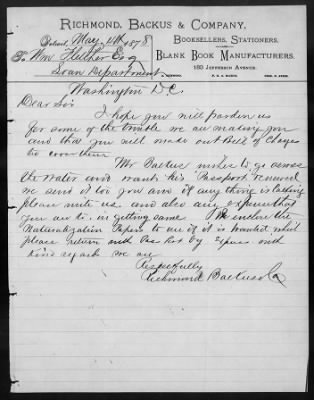 RICHMOND, BACKUS & COMPANY,
BOOKSELLERS, STATIONERS,
AND
BLANK BOOK MANUFACTURERS.
183 JEFFERSON AVENUE.
Detroit, May 1878
To Wm Esq
Loan Department
Washington D.C.
Dear Sir
I hope you will pardon us
for some of the trouble we are making you
and that you will made out Bill of Charges
to cover them
Mr Backus wishes to go across
the water and wants his Passport renewed
we sent it to you and if any thing is lacking
please write us and also any expense that
you are to in getting same I enclose the
Naturalization Papers to use if it is wanted which
please return with Pass Port by Express with
Kind regards we are
Respectfully
Richmond Backus & Co